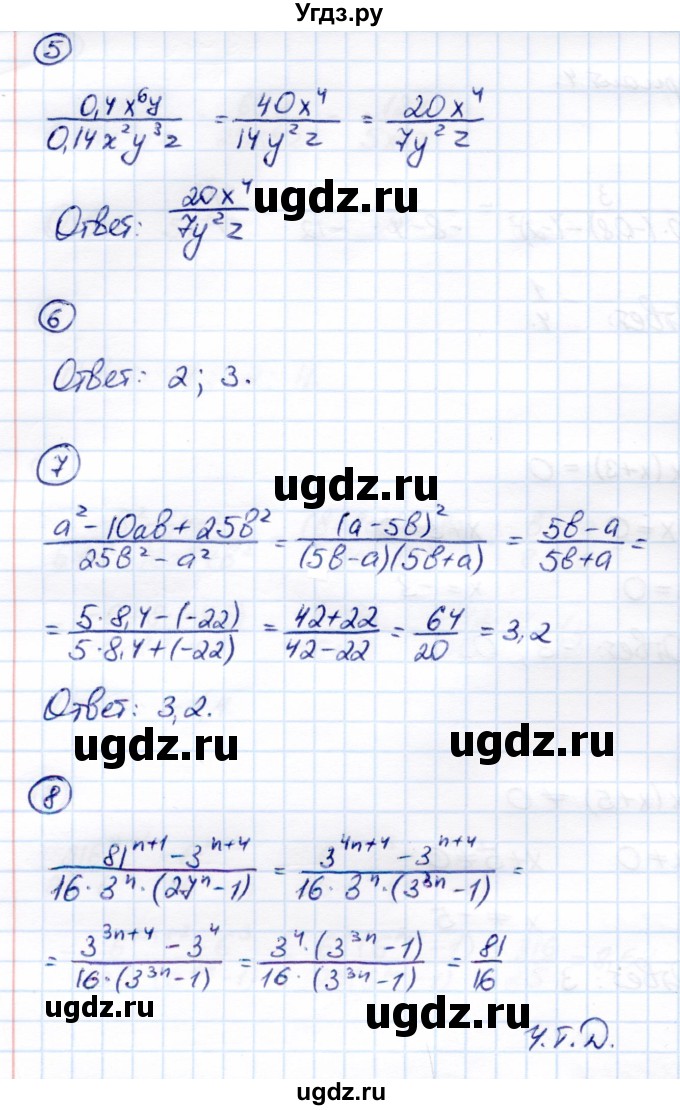 Угдз.ру
5
0,4x⁶y / 0,14x²y³z = 40x⁴ / 14y²z = 20x⁴ / 7y²z
Ответ: 20x⁴ / 7y²z
ugdz.ru
ugdz.ru
6
Ответ: 2; 3.
7
ugdz.ru
a² - 10ab + 25b² / 25b² - a² = (a - 5b)² / (5b - a)(5b + a) = 5b - a / 5b + a =
= 5·8,4 - (-22) / 5·8,4 + (-22) = 42 + 22 / 42 - 22 = 64 / 20 = 3,2
Ответ: 3,2.
ugdz.ru
ugdz.ru
8
81ⁿ⁺¹ - 3ⁿ⁺⁴ / 16·3ⁿ·(27ⁿ - 1) = 3⁴ⁿ⁺⁴ - 3ⁿ⁺⁴ / 16·3ⁿ·(3³ⁿ - 1) =
= 3³ⁿ⁺⁴ - 3⁴ / 16·(3³ⁿ - 1) = 3⁴·(3³ⁿ - 1) / 16·(3³ⁿ - 1) = 81 / 16
ugdz.ru
ugdz.ru
Ч.Т.Д.
ugdz.ru